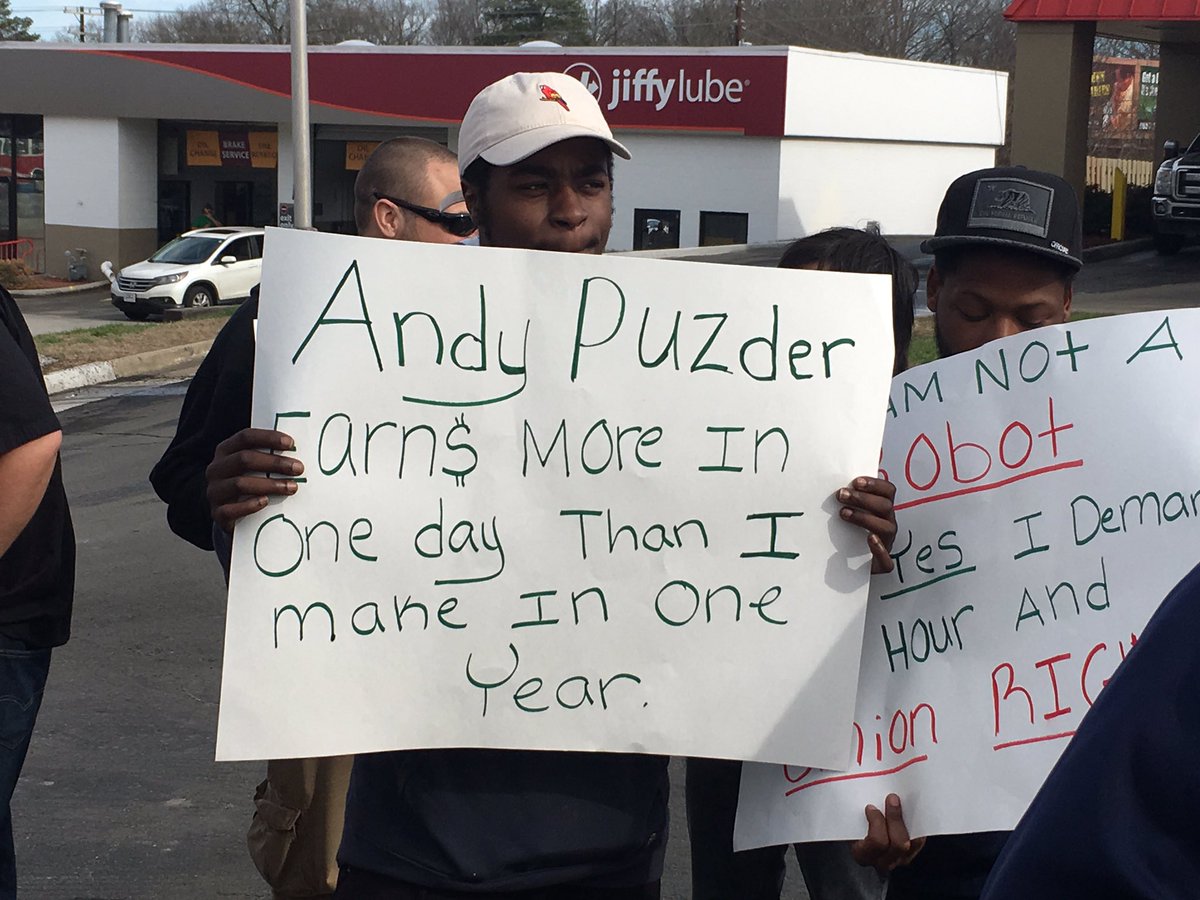 jiffy lube
OIL
CHANGE
BRAKE
SERVICE
Andy Puzder
Earn$ More In
One day Than I
make In One
Year.
AM NOT A
Robot
Yes I Deman
Hour And
Union RIG